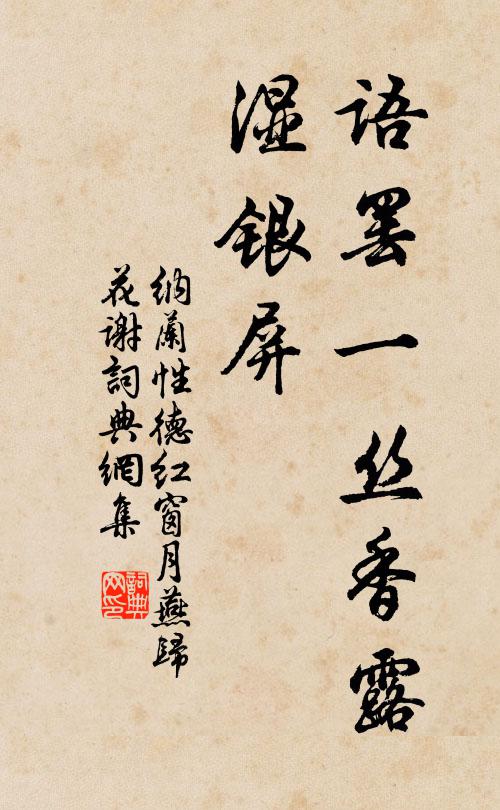 语罢一丝香露
湿银屏
纳蘭性德红窗月燕歸
花谢詞典網集
詞典
网印